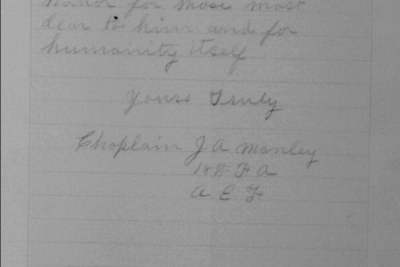 honor for those most
dear to him and for
humanity itself
Yours Truly
Chaplain J A Manley
18th F A
A E F